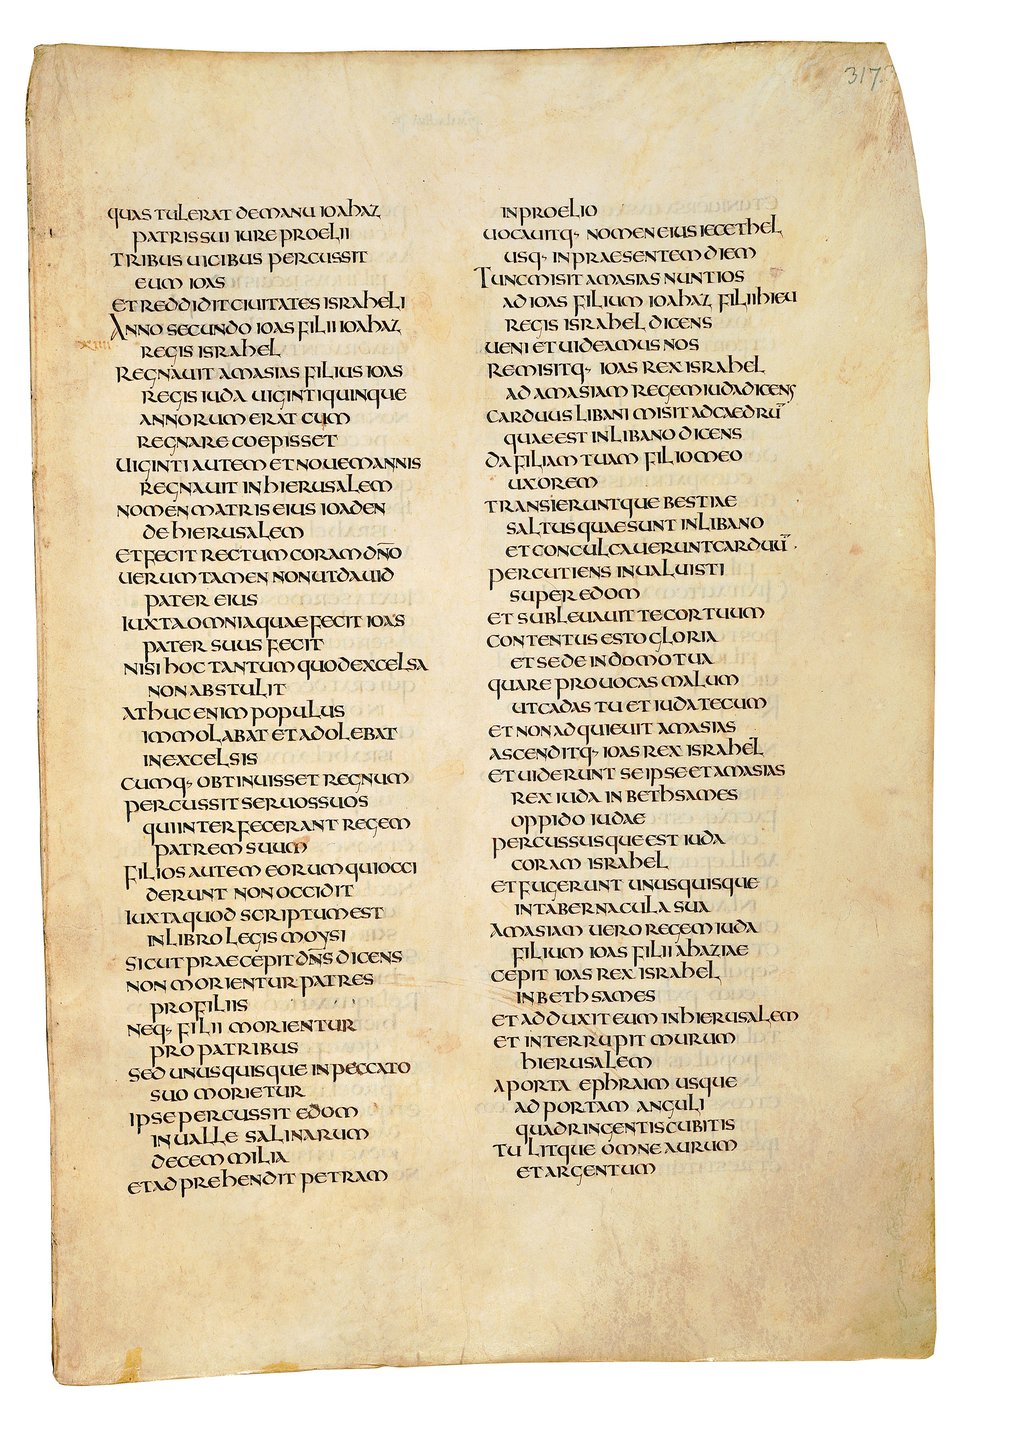 317
QUAS TULERAT DE MANU IOAHAZ
PATRIS SUI IURE PROELII
TRIBUS UICIBUS PERCUSSIT
EUM IOAS
ET REDDIDIT CIUITATES ISRAHELI
ANNO SECUNDO IOAS FILII IOAHAZ
REGIS ISRAHEL
REGNAUIT AMASIAS FILIUS IOAS
REGIS IUDA UIGINTI QUINQUE
ANNORUM ERAT CUM
REGNARE COEPISSET
UIGINTI AUTEM ET NOUEM ANNIS
REGNAUIT IN HIERUSALEM
NOMEN MATRIS EIUS IOADEN
DE HIERUSALEM
ET FECIT RECTUM CORAM DN̄O
UERUM TAMEN NON UT DAUID
PATER EIUS
IUXTA OMNIA QUAE FECIT IOAS
PATER SUUS FECIT
NISI HOC TANTUM QUOD EXCELSA
NON ABSTULIT
ATHUC ENIM POPULUS
IMMOLABAT ET ADOLEBAT
IN EXCELSIS
CUMQ· OBTINUISSET REGNUM
PERCUSSIT SERUOS SUOS
QUI INTERFECERANT REGEM
PATREM SUUM
FILIOS AUTEM EORUM QUI OCCI
DERUNT NON OCCIDIT
IUXTA QUOD SCRIPTUM EST
IN LIBRO LEGIS MOYSI
SICUT PRAECEPIT DN̄S DICENS
NON MORIENTUR PATRES
PRO FILIIS
NEQ· FILII MORIENTUR
PRO PATRIBUS
SED UNUSQUISQUE IN PECCATO
SUO MORIETUR
IPSE PERCUSSIT EDOM
IN UALLE SALINARUM
DECEM MILIA
ET ADPREHENDIT PETRAM
IN PROELIO
UOCAUITQ· NOMEN EIUS IECETHEL
USQ· IN PRAESENTEM DIEM
TUNC MISIT AMASIAS NUNTIOS
AD IOAS FILIUM IOAHAZ FILII HIEU
REGIS ISRAHEL DICENS
UENI ET UIDEAMUS NOS
REMISITQ· IOAS REX ISRAHEL
AD AMASIAM REGEM IUDA DICENS
CARDUUS LIBANI MISIT AD CAEDRŪ
QUAE EST IN LIBANO DICENS
DA FILIAM TUAM FILIO MEO
UXOREM
TRANSIERUNTQUE BESTIAE
SALTUS QUAE SUNT IN LIBANO
ET CONCULCAUERUNT CARDUŪ
PERCUTIENS INUALUISTI
SUPER EDOM
ET SUBLEUAUIT TE COR TUUM
CONTENTUS ESTO GLORIA
ET SEDE IN DOMO TUA
QUARE PROUOCAS MALUM
UT CADAS TU ET IUDA TECUM
ET NON ADQUIEUIT AMASIAS
ASCENDITQ· IOAS REX ISRAHEL
ET UIDERUNT SE IPSE ET AMASIAS
REX IUDA IN BETHSAMES
OPPIDO IUDAE
PERCUSSUSQUE EST IUDA
CORAM ISRAHEL
ET FUGERUNT UNUSQUISQUE
IN TABERNACULA SUA
AMASIAM UERO REGEM IUDA
FILIUM IOAS FILII AHAZIAE
CEPIT IOAS REX ISRAHEL
IN BETHSAMES
ET ADDUXIT EUM IN HIERUSALEM
ET INTERRUPIT MURUM
HIERUSALEM
A PORTA EPHRAIM USQUE
AD PORTAM ANGULI
QUADRINGENTIS CUBITIS
TULITQUE OMNE AURUM
ET ARGENTUM